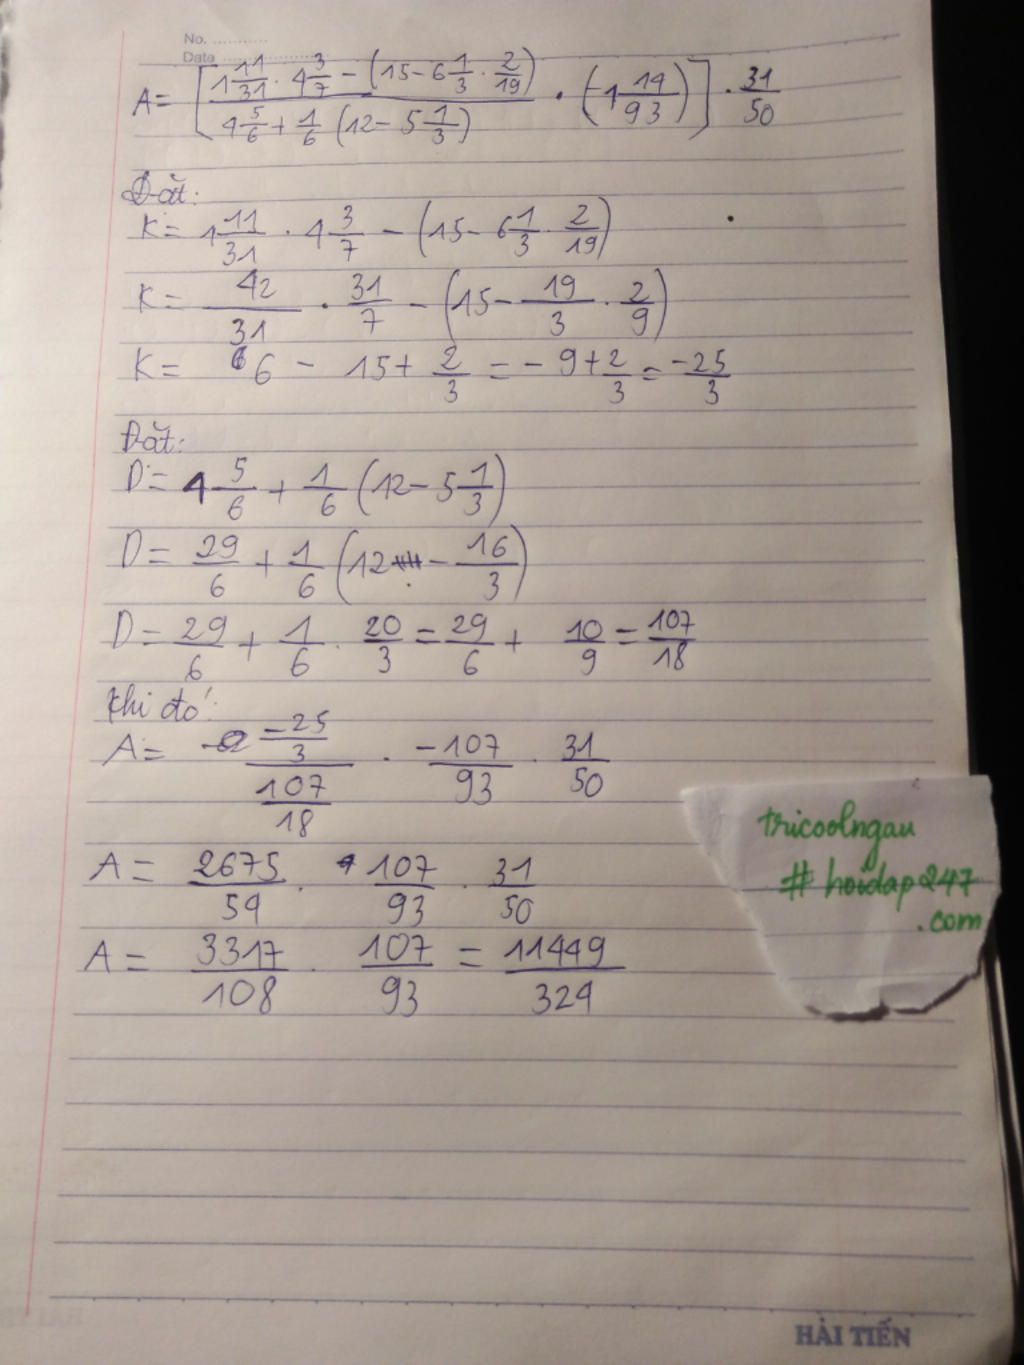 No. ............
Data ........................
A = [ (1 11/31 . 4 3/7 - (15 - 6 1/3 . 2/19)) / (4 5/6 + 1/6 (12 - 5 1/3)) . (-1 14/93) ] . 31/50
Đặt:
K = 1 11/31 . 4 3/7 - (15 - 6 1/3 . 2/19)
K = 42/31 . 31/7 - (15 - 19/3 . 2/9)
K = 6 - 15 + 2/3 = -9 + 2/3 = -25/3
Đặt:
D = 4 5/6 + 1/6 (12 - 5 1/3)
D = 29/6 + 1/6 (12 - 16/3)
D = 29/6 + 1/6 . 20/3 = 29/6 + 10/9 = 107/18
Khi đó:
A = (-25/3) / (107/18) . -107/93 . 31/50
A = 2675/59 . 107/93 . 31/50
A = 3317/108 . 107/93 = 11449/324
tricoolngau
# hoidap247
.com
HẢI TIẾN